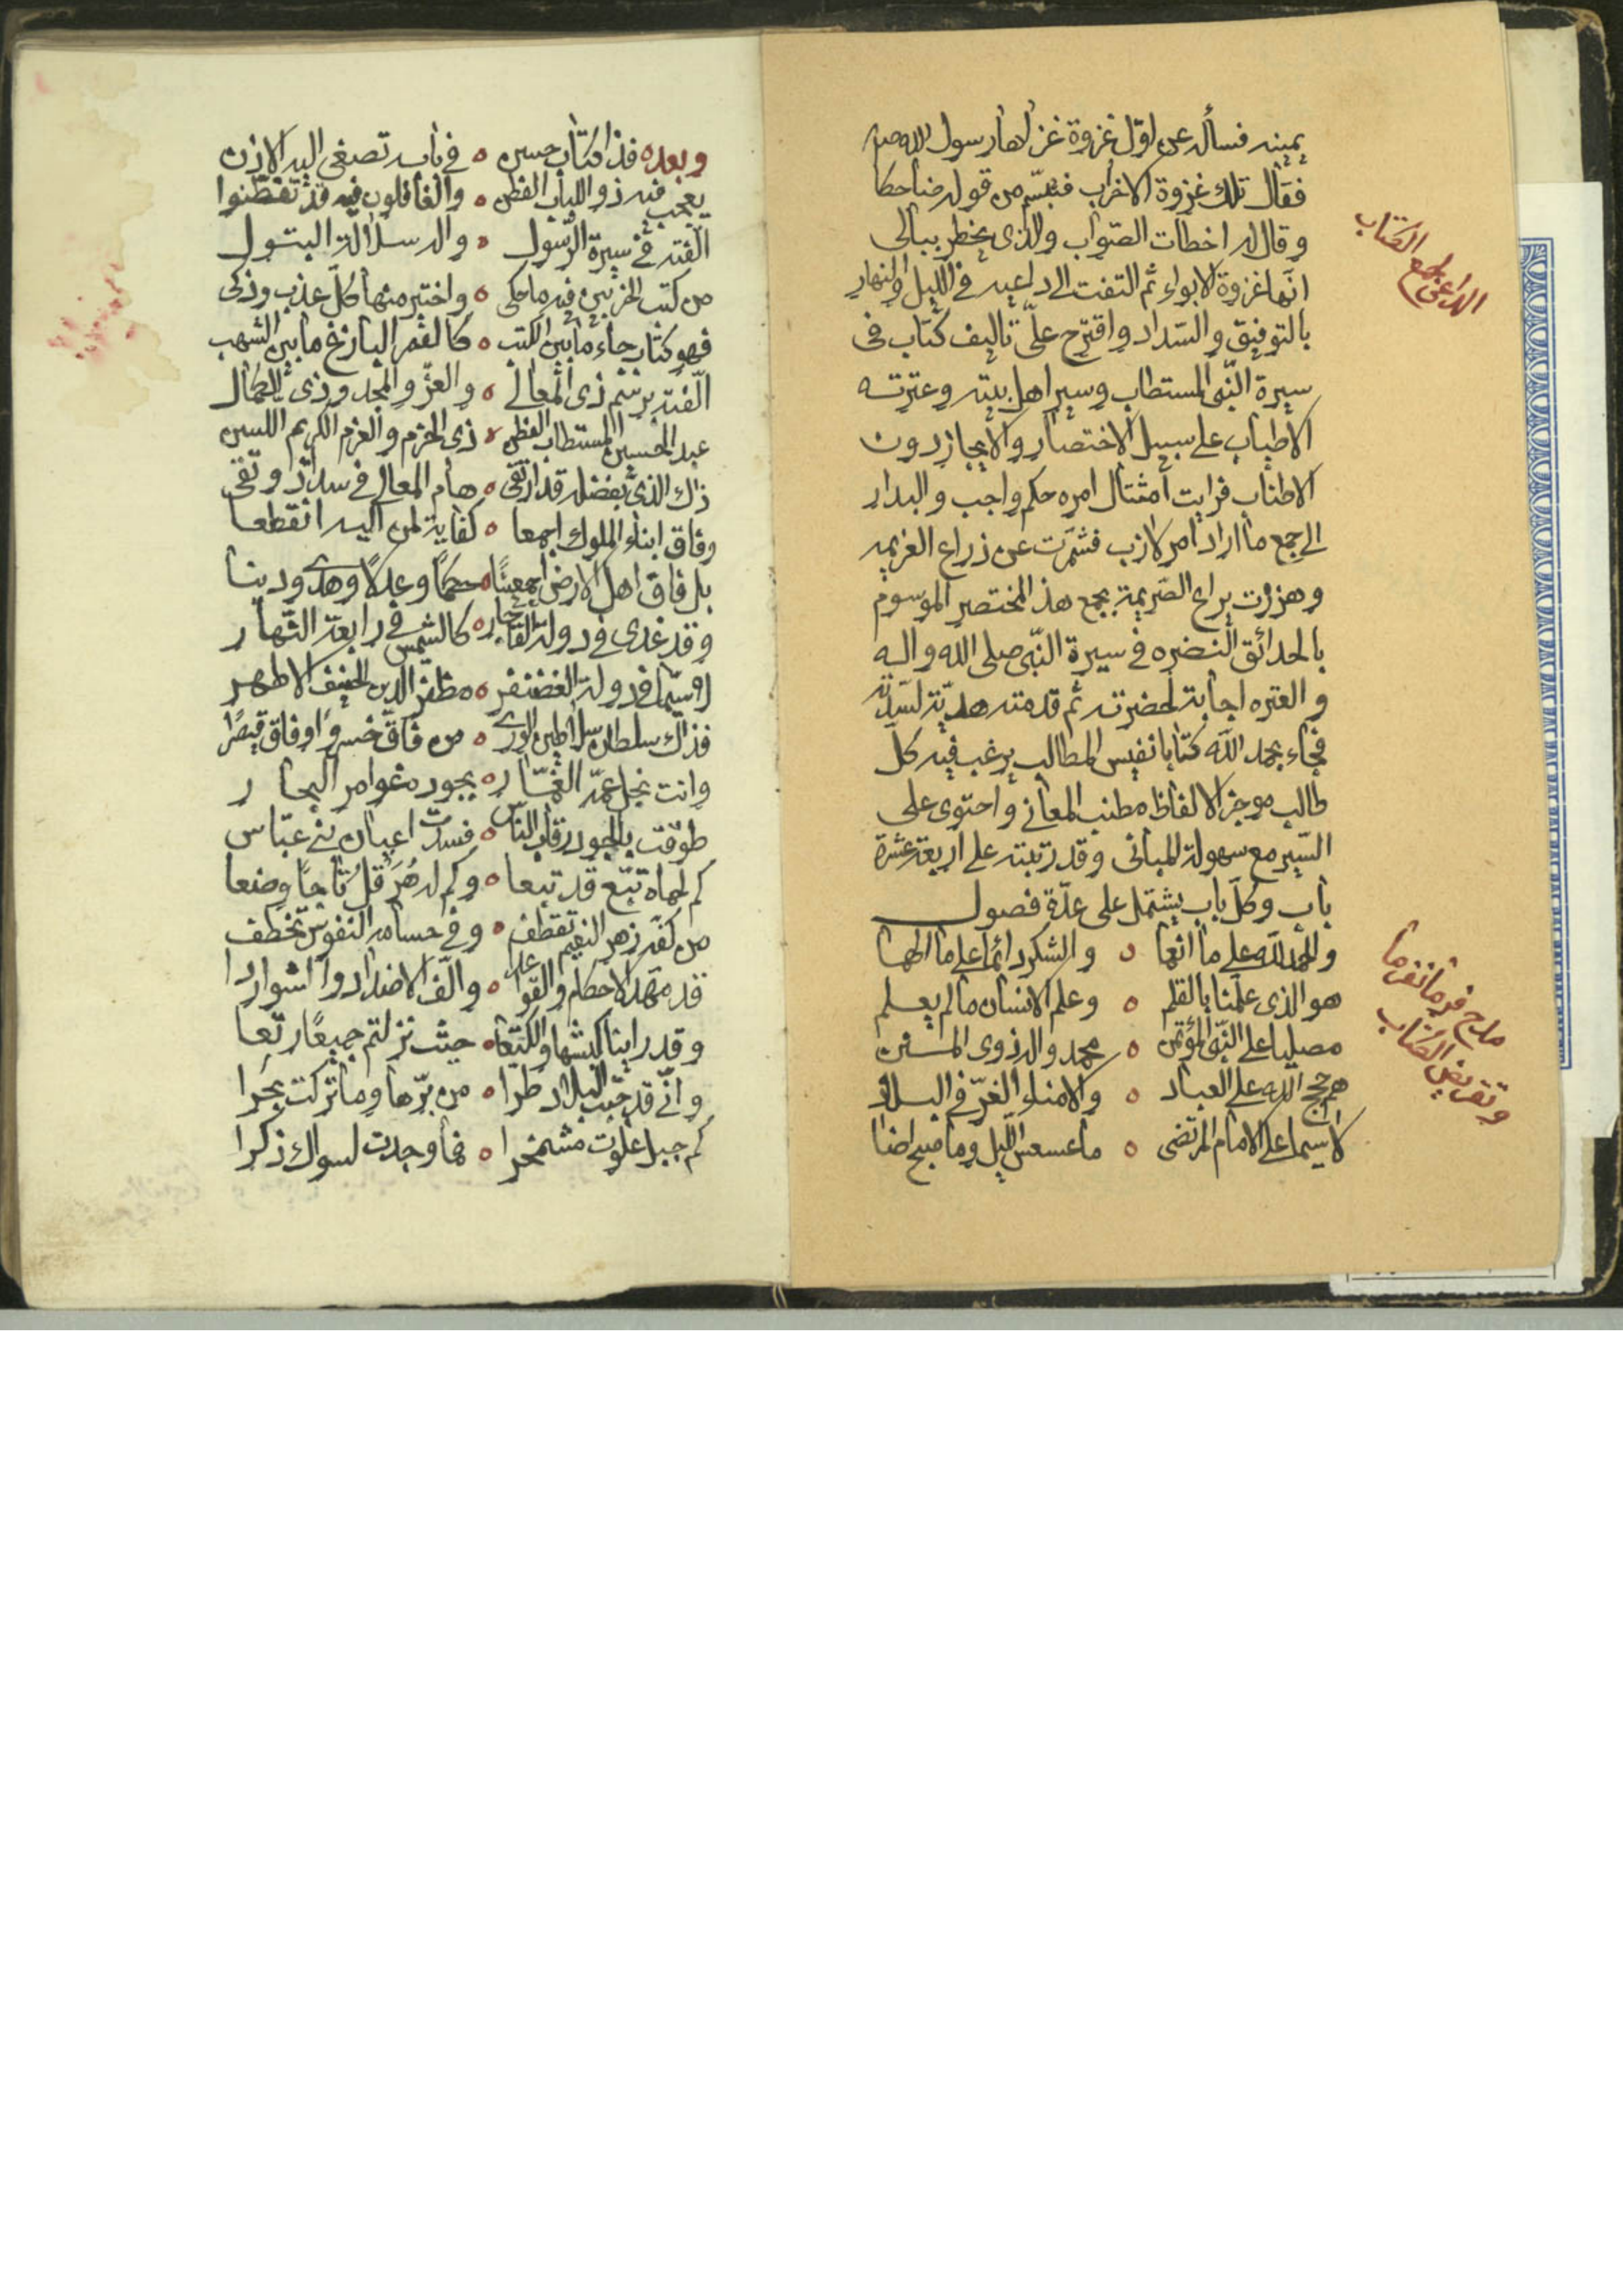 يمينه فسأله عن اول غزوة غزاها رسول الله صم
فقال تلك غزوة الاحزاب فتبسّم من قوله ضاحكا
و قال له اخطات الصّواب والذى يخطر ببالى
انّها غزوة الابواء ثم التفت الى داعيه فى الليل والنهار
بالتوفيق والسّداد و اقترح علىّ تاليف كتاب فى
سيرة النّبى المستطاب و سير اهل بيته و عترته
الاطياب على سبيل الاختصار والايجاز دون
الاطناب فرايت امتثال امره حكم واجب و البدار
الى جمع ما اراد امر لازب فشمّرت عن ذراع العزيمه
و هززت يراع الصّريمة بجمع هذ المختصر الموسوم
بالحدائق النضره فى سيرة النّبى صلى الله و اله
و العتره اجابة لحضرته ثم قدمته هديّة لسدته
فجاء بحمد الله كتابا نفيس المطالب يرغب فيه كل
طالب موجز الالفاظ مطنب المعانى و احتوى على
السّير مع سهولة المبانى و قد رتبته على اربعة عشرة
باب و كلّ باب يشتمل على عدّة فصول
و الحمد لله على ما انعما ه و الشكر دائما على ما الهما
هو الذى علّمنا بالقلم ه و علم الانسان مالم يعلم
مصليا على النّبى المؤتمن ه محمد و اله ذوى المنن
هم حجج الله على العباد ه والامناء الغرّ فى البلاد
لاسيما على الامام المرتضى ه ما عسعس الليل و ما صبح اضا
الداعى لجمع الكتاب
مدح فرمانفرما
و تقريض الكتاب
و بعد ه فذا كتاب حسن ه فى بابه تصغى اليه الاذن
يعجب منه ذو اللباب الفطن ه و الغافلون فيه قد تفطّنوا
الّفته فى سيرة الرّسول ه و اله سلالة البتول
من كتب الحزبين فيه ما حكى ه و اختير منها كلّ عذب و ذكى
فهو كتاب جاء ما بين الكتب ه كالقمر البازغ ما بين الشهب
الّفته برسم ذى المعالى ه و العزّ و المجد و ذى الكمال
عبد الحسين المستطاب الفطن ه ذى الحزم و العزم الكريم اللسن
ذاك الذى بفضله قد ارتقى ه هام المعالى فى سداد و تقى
و فاق ابناء الملوك اجمعا ه كفاية لمن اليه انقطعا
بل فاق اهل الارض اجمعينا ه حكما و عدلا و هدى و دينا
و قد غدى فى دولة القاجار ه كالشمس فى رابعة النّهار
لا سيّما فى دولة الغضنفر ه مظفر الدين الحنيف الاطهر
فذاك سلطان سلاطين الورى ه من فاق خسروا و فاق قيصرا
و انت نجل عمّه الغمّار ه بجوده غوامر البحار
طوّقت بالجود رقاب النّاس ه فسدت اعيان بنى عبّاس
كم لحماه تبّع قد تبعا ه و كم له هرقل تاجا وضعا
من كفّه زهر النعيم تقطف ه و فى حسامه النفوس تخطف
قد مهّد الاحكام و القواعدا ه و الّف الاضداد و الشواردا
و قد راينا كبشها و الكتّعا ه حيث نزلتم جميعا رتّعا
و انّى قد جبت البلاد طرا ه من برّها و ما تركت بحرا
كم جبل علوت مشمخرا ه فما وجدت لسواك ذكرا